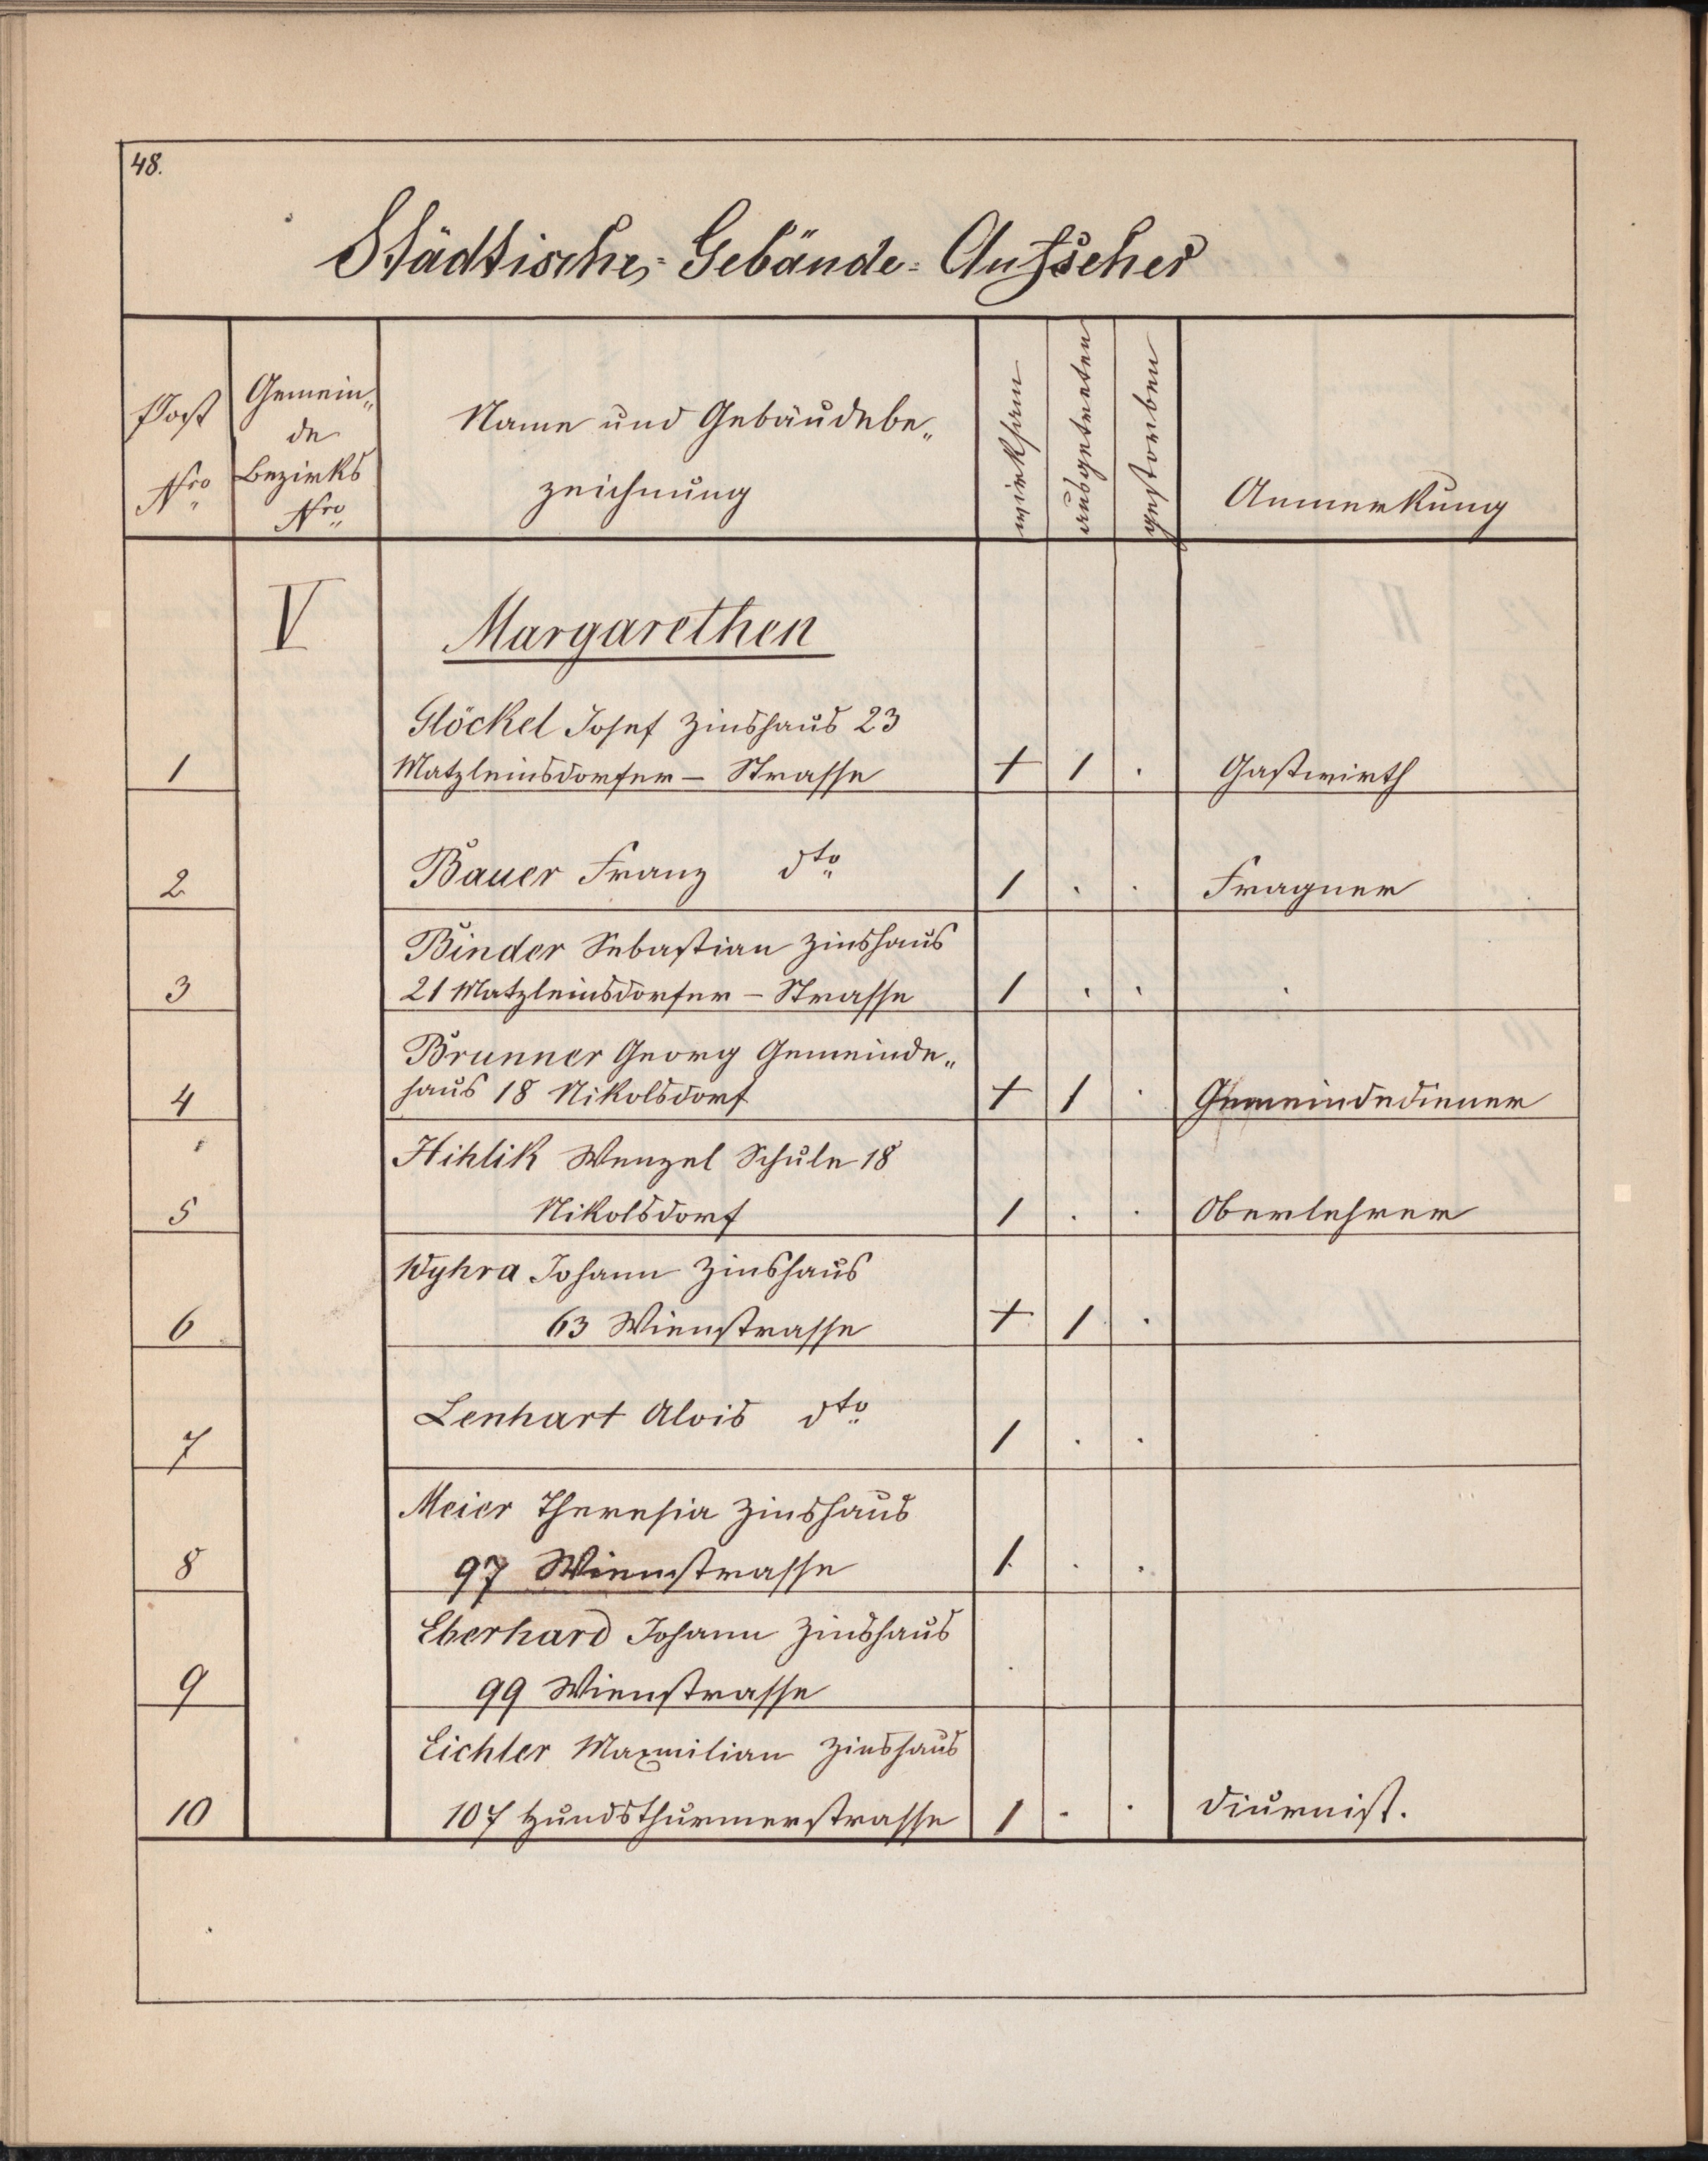 48.
Städtische-Gebäude-Aufseher
Post Nro
Gemein„
de
Bezirks
Nro
Name und Gebäudebe„
zeichnung
wirksam
ausgetreten
gestorben
Anmerkung
V Margarethen
Glöckel Josef Zinshaus 23
1 Matzleinsdorfer-Strasse + 1 . Gastwirth
2 Bauer Franz dto 1 . . Fragner
Binder Sebastian Zinshaus
3 21 Matzleinsdorfer-Strasse 1 . . .
Brunner Georg Gemeinde„
4 haus 18 Nikolsdorf + 1 . Gemeindediener
Hihlik Wenzel Schule 18
5 Nikolsdorf 1 . . Oberlehrer
Wyhra Johann Zinshaus
6 63 Wienstrasse + 1 .
7 Lenhart Alois dto 1 . .
Meier Theresia Zinshaus
8 97 Wienstrasse 1 . .
Eberhard Johann Zinshaus
9 99 Wienstrasse .
Eichler Maxmilian Zinshaus
10 107 Hundsthurmerstrasse 1 . . Diurnist.